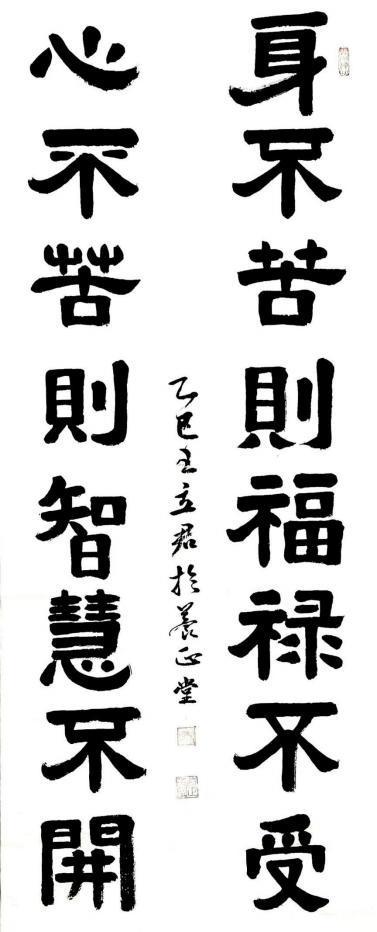 身不苦則福禄不受
心不苦則智慧不開
乙巳王立君於養正堂